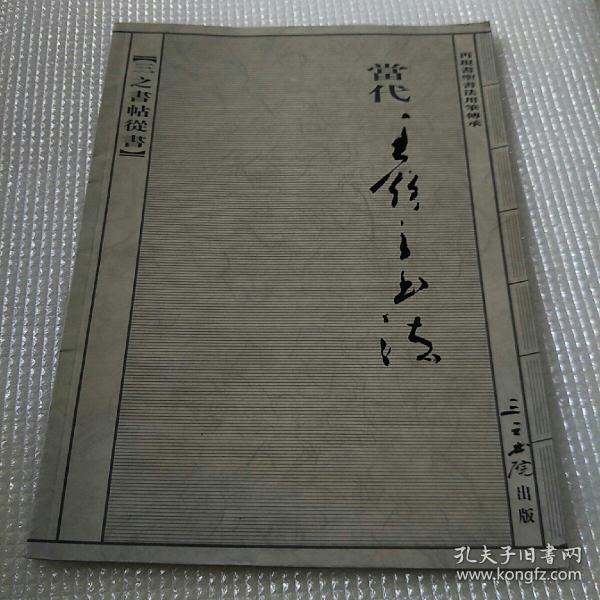 再現書聖書法用筆傳承
當代
书法
三之书院出版
【三之書帖從書】
孔夫子旧书网
www.kongfz.com